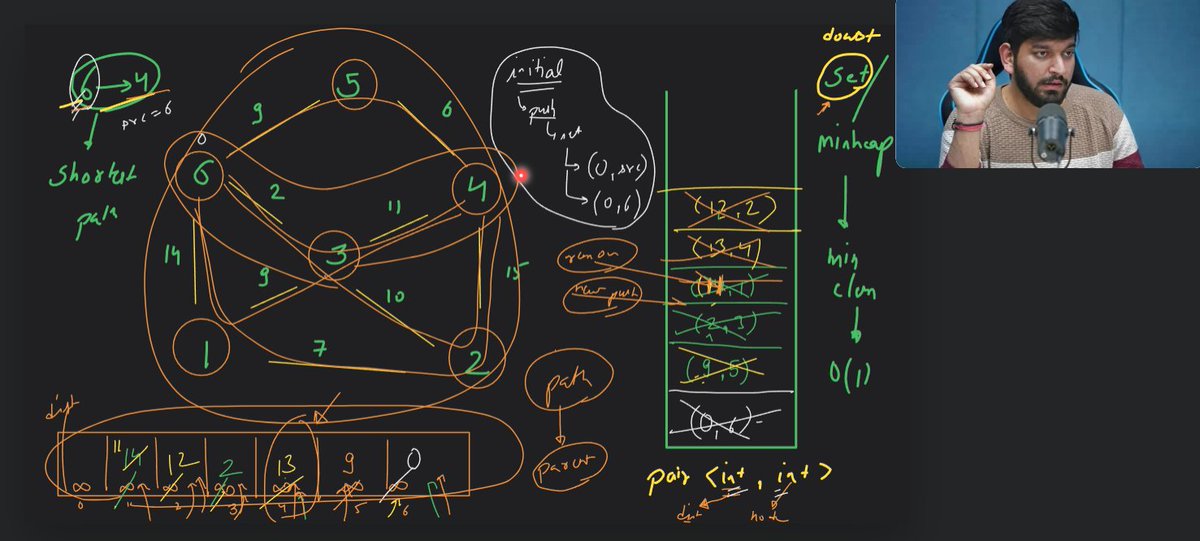 6 → 4
src = 6
shortest
path
5
9
6
0
6
4
2
11
3
14
9
10
15
1
7
2
initial
push
set
(0, src)
(0, 6)
doubt
Set /
minheap
min
elem
O(1)
remove
new push
(12, 2)
(13, 4)
(2, 3)
(9, 5)
(0, 6)
pair <int , int>
dist
node
path
parent
dist
11 14 12 2 13 9 0
∞ ∞ ∞ ∞ ∞ ∞ ∞
0 1 2 3 4 5 6